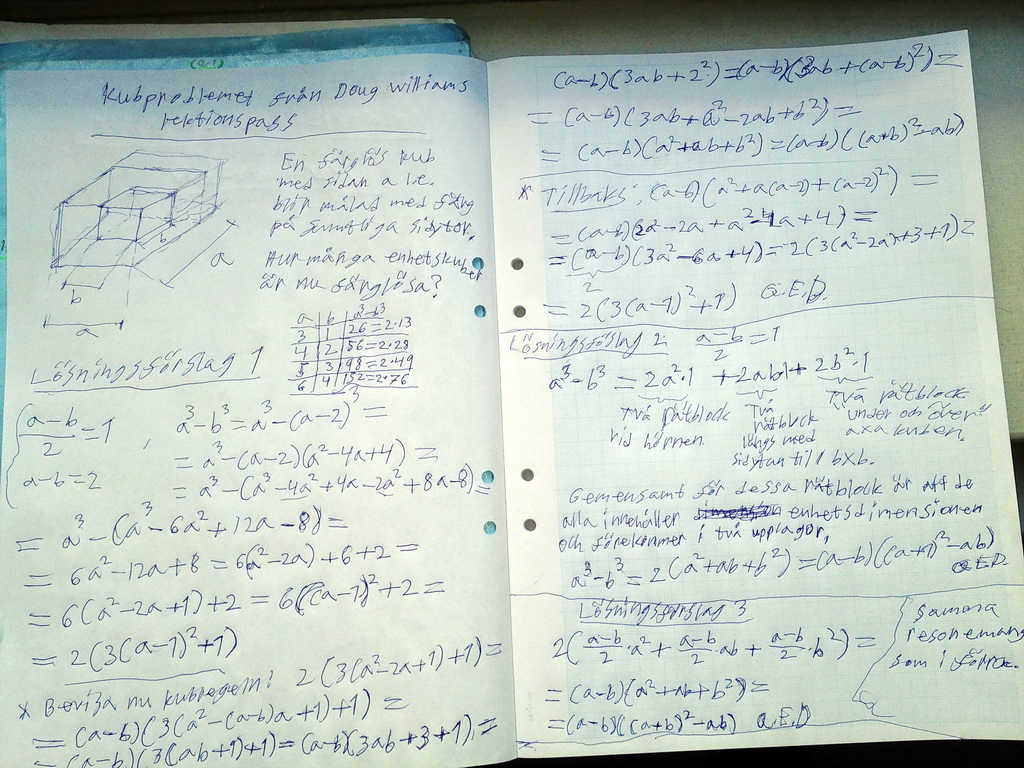 Kubproblemet från Doug Williams
lektionspass
En färglös kub
med sidan a l.e.
blir målad med färg
på samtliga sidytor.
Hur många enhetskuber
är nu färglösa?
b
a
b
a
a b a³-b³
3 1 26=2·13
4 2 56=2·28
5 3 98=2·49
6 4 152=2·76
Lösningsförslag 1
(a-b)/2 = 1, a³-b³ = a³-(a-2)³ =
a-b=2
= a³-(a-2)(a²-4a+4) =
= a³-(a³-4a²+4a-2a²+8a-8)=
= a³-(a³-6a²+12a-8)=
= 6a²-12a+8 = 6(a²-2a)+6+2 =
= 6(a²-2a+1)+2 = 6((a-1)²+2 =
= 2(3(a-1)²+1)
* Bevisa nu kubregeln! 2(3(a²-2a+1)+1)=
= (a-b)(3(a²-(a-b)a+1)+1) =
= (a-b)(3(ab+1)+1) = (a-b)(3ab+3+1) =
(a-b)(3ab+2²)=(a-b)(3ab+(a-b)²)=
= (a-b)(3ab+a²-2ab+b²) =
= (a-b)(a²+ab+b²)=(a-b)((a+b)²-ab)
* Tillbaks: (a-b)(a²+a(a-2)+(a-2)²) =
= (a-b)(2a²-2a+a²-4a+4) =
= (a-b)(3a²-6a+4)=2(3(a²-2a)+3+1)=
2
= 2(3(a-1)²+1) Q.E.D.
Lösningsförslag 2 (a-b)/2 = 1
a³-b³ = 2a²·1 + 2ab·1 + 2b²·1
Två rätblock
vid hörnen
Två
rätblock
längs med
sidytan till 1 b×b.
Två rätblock
"under och över"
kuben.
Gemensamt för dessa rätblock är att de
alla innehåller enhetsdimensionen
och förekommer i två upplagor.
a³-b³ = 2(a²+ab+b²)=(a-b)((a+1)²-ab)
Q.E.D.
Lösningsförslag 3
2((a-b)/2·a² + (a-b)/2·ab + (a-b)/2·b²) =
= (a-b)(a²+ab+b²)=
= (a-b)((a+b)²-ab) Q.E.D
samma
resonemang
som i förra.